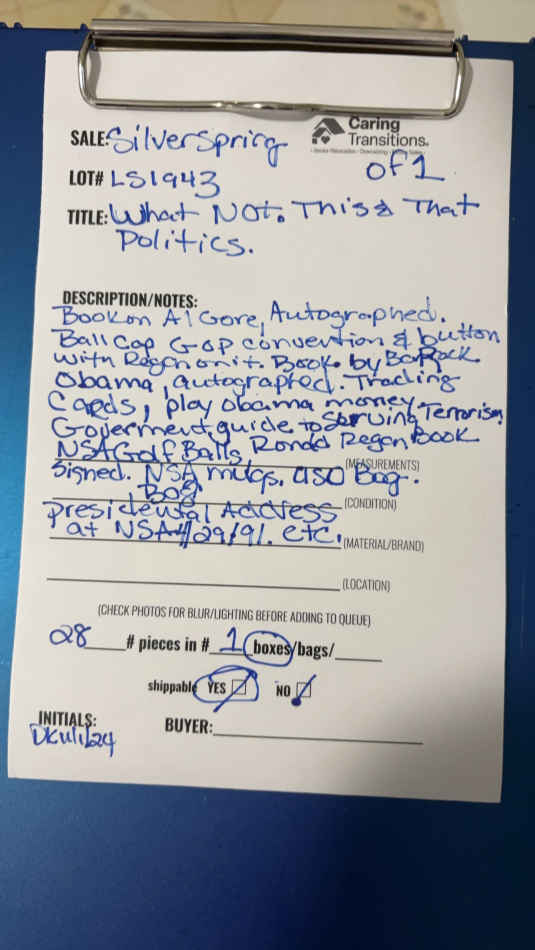 Caring
Transitions.
SALE: Silverspring
of 1
LOT# LS1943
TITLE: What Not. This & That
Politics.
DESCRIPTION/NOTES:
Book on Al Gore, Autographed.
Ball Cap GOP convention & button
with Regen on it. Book. by Barrack
Obama, autographed. Trading
Cards, play obama money.
Goverment guide to Surving Terrorism
NSA Golf Balls, Ronald Regen Book
Signed. NSA mugs. also Bag.
(MEASUREMENTS)
Bag
presidental Address (CONDITION)
at NSA 29/91. etc. (MATERIAL/BRAND)
(LOCATION)
(CHECK PHOTOS FOR BLUR/LIGHTING BEFORE ADDING TO QUEUE)
28 # pieces in # 1 boxes/bags/
shippable YES NO
INITIALS: BUYER: